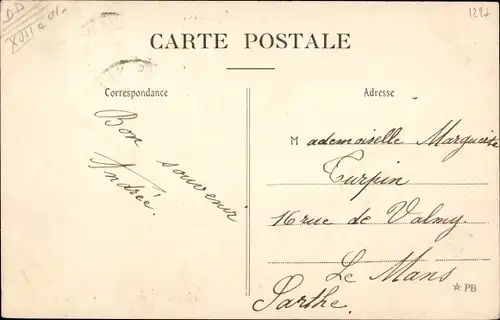 DD
XIII e
1227
CARTE POSTALE
Correspondance
Adresse
Bon souvenir
Andrée.
Mademoiselle Marguerite
Turpin
16 rue de Valmy.
Le Mans
Sarthe.
☆ PB